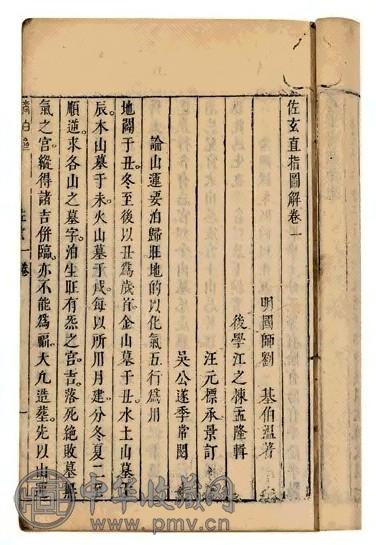 佐玄直指圖解卷一
明國師劉 基伯溫著
後學江之棟孟隆輯
汪元標承景訂
吳公遂季常閱
論山運要泊歸旺地的以化氣五行為用
地闢于丑。冬至後以丑為歲首。金山墓于丑。水土山墓于
辰。木山墓于未。火山墓于戌。每以所用月建。分冬夏二至
順逆。求各山之墓字。泊生旺有炁之宮。吉。落死絕敗墓無
氣之宮。縱得諸吉併臨。亦不能為福。大凡造塟。先以山運
中华收藏网
www.pmv.cn